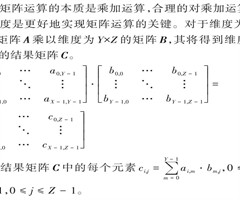 矩阵运算的本质是乘加运算,合理的对乘加运
度是更好地实现矩阵运算的关键。对于维度为
矩阵 A 乘以维度为 Y×Z 的矩阵 B,其将得到维度
的结果矩阵 C。
⋯ a0,Y−1 b0,0 ⋯ b0,Z−1
⋱ ⋮ · ⋮ ⋱ ⋮ =
1,0 ⋯ aX−1,Y−1 bY−1,0 ⋯ bY−1,Z−1
⋯ c0,Z−1
⋱ ⋮
1,0 ⋯ cX−1,Z−1
结果矩阵 C 中的每个元素 ci,j = Σ Y−1 m=0 ai,m · bm,j,0 ≤
1,0 ≤ j ≤ Z − 1。